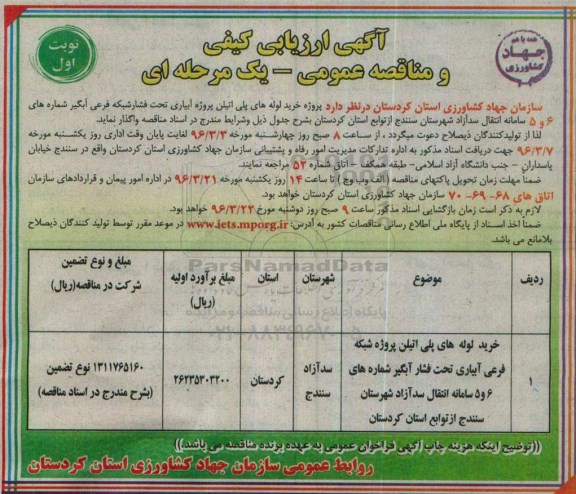 همه با هم
جهاد
کشاورزی
آگهی ارزیابی کیفی
و مناقصه عمومی – یک مرحله ای
نوبت
اول
سازمان جهاد کشاورزی استان کردستان درنظر دارد پروژه خرید لوله های پلی اتیلن پروژه آبیاری تحت فشارشبکه فرعی آبگیر شماره های
۶ و ۵ سامانه انتقال سدآزاد شهرستان سنندج ازتوابع استان کردستان بشرح جدول ذیل وشرایط مندرج در اسناد مناقصه واگذار نماید.
لذا از تولیدکنندگان ذیصلاح دعوت میگردد ، از ساعت ۸ صبح روز چهارشنبه مورخه ۹۶/۳/۳ لغایت پایان وقت اداری روز یکشنبه مورخه
۹۶/۳/۷ جهت دریافت اسناد مذکور به اداره تدارکات مدیریت امور رفاه و پشتیبانی سازمان جهاد کشاورزی استان کردستان واقع در سنندج خیابان
پاسداران – جنب دانشگاه آزاد اسلامی- طبقه همکف – اتاق شماره ۵۲ مراجعه نمایند.
ضمناً مهلت زمان تحویل پاکتهای مناقصه (الف، وب وج ) تا ساعت ۱۴ روز یکشنبه مورخه ۹۶/۳/۲۱ در اداره امور پیمان و قراردادهای سازمان
اتاق های ۶۸- ۶۹- ۷۰ سازمان جهاد کشاورزی استان کردستان خواهد بود.
لازم به ذکر است زمان بازگشایی اسناد مذکور ساعت ۹ صبح روز دوشنبه مورخ ۹۶/۳/۲۲ خواهد بود.
ضمناً اخذ اسناد از پایگاه ملی اطلاع رسانی مناقصات کشور به آدرس: www.iets.mporg.ir در موعد مقرر توسط تولید کنندگان ذیصلاح
بلامانع می باشد.
ParsNamadData
پایگاه اطلاع رسانی مناقصه و مزایده
۰۲۱-۸۸۳۴۹۶۷۰
ردیف
موضوع
شهرستان
استان
مبلغ برآورد اولیه
(ریال)
مبلغ و نوع تضمین
شرکت در مناقصه(ریال)
۱
خرید لوله های پلی اتیلن پروژه شبکه
فرعی آبیاری تحت فشار آبگیر شماره های
۶ و۵ سامانه انتقال سدآزاد شهرستان
سنندج ازتوابع استان کردستان
سدآزاد
سنندج
کردستان
۲۶۲۳۵۳۰۳۲۰۰
۱۳۱۱۷۶۵۱۶۰ نوع تضمین
(بشرح مندرج در اسناد مناقصه)
((توضیح اینکه هزینه چاپ آگهی فراخوان عمومی به عهده برنده مناقصه می باشد.))
روابط عمومی سازمان جهاد کشاورزی استان کردستان